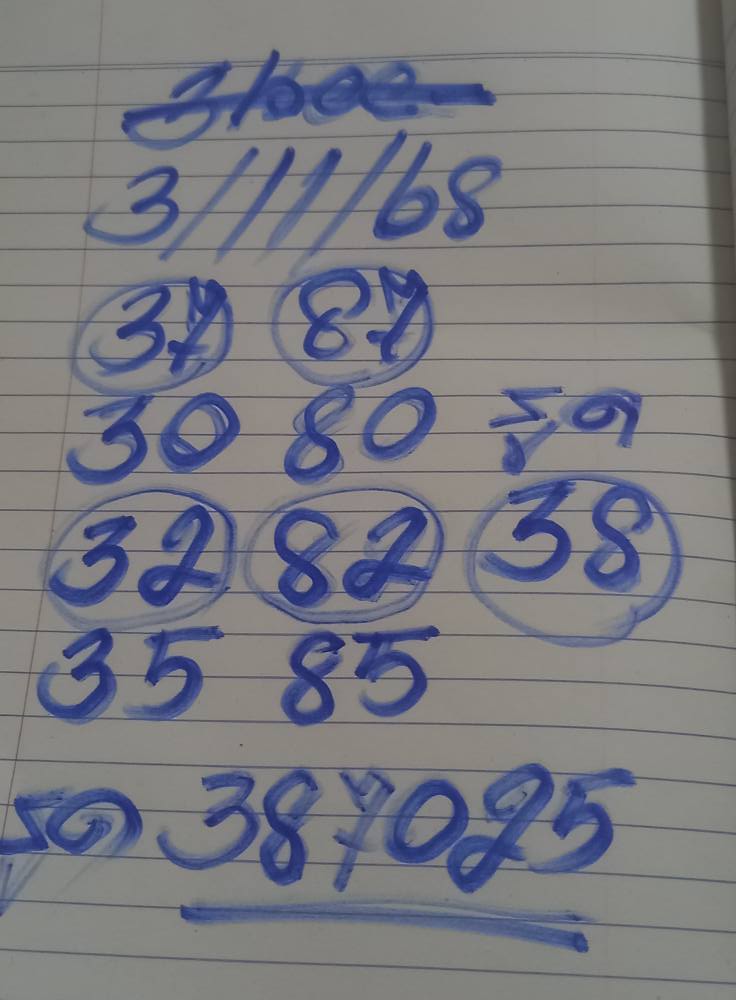 3/11/68
37 87
30 80 รูด
32 82 38
35 85
รูด 387025